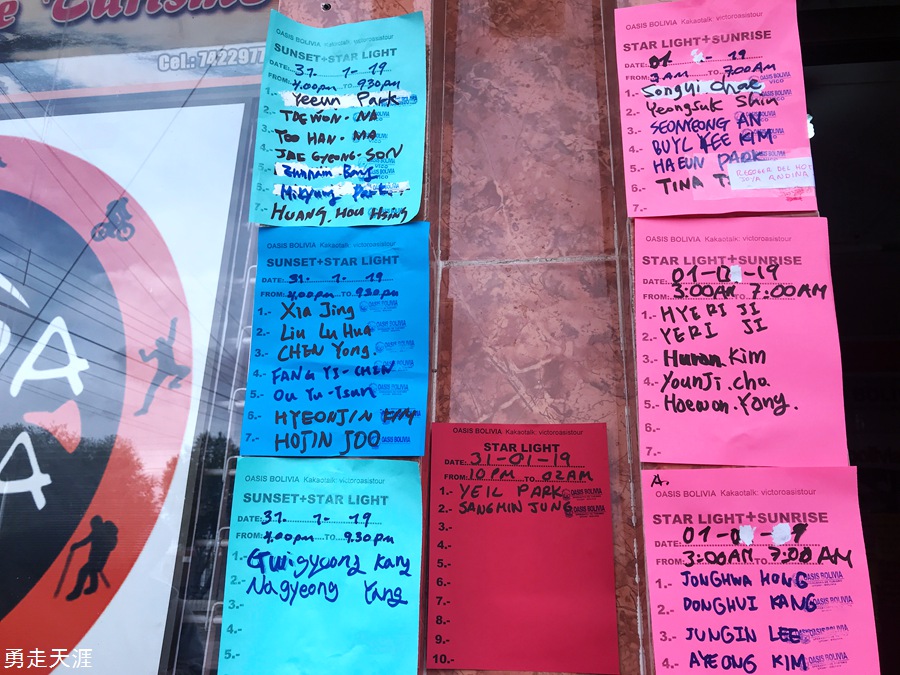 e Turismo
Cel.: 7422977
OASIS BOLIVIA Kakaotalk: victoroasistour
SUNSET+STAR LIGHT
DATE: 31- 1- 19
FROM: 4.00pm TO 930pm
1.- Yeeun Park
2.- TAEWON-NA
3.- YOO HAN-MA
4.- JAE GYEONG-SON
5.- Eunnam Bang
6.- Park
7.- HUANG, HOU HSING
OASIS BOLIVIA Kakaotalk: victoroasistour
SUNSET+STAR LIGHT
DATE: 31- 1- 19
FROM: 4.00pm TO 930pm
1.- Xia Jing
2.- Liu Lu Hua
3.- CHEN Yong.
4.- FANG YI-CHEN
5.- Ou Yu-Tsun
6.- HYEONJIN
7.- HOJIN JOO
OASIS BOLIVIA Kakaotalk: victoroasistour
SUNSET+STAR LIGHT
DATE: 31- 1- 19
FROM: 4.00pm TO 9.30pm
1.- Gwigyuong Kang
2.- Nagyeong Yang
3.-
4.-
5.-
OASIS BOLIVIA Kakaotalk: victoroasistour
STAR LIGHT
DATE: 31-01-19
FROM: 10PM TO 02AM
1.- YEIL PARK
2.- SANGMIN JUNG
3.-
4.-
5.-
6.-
7.-
8.-
9.-
10.-
OASIS BOLIVIA Kakaotalk: victoroasistour
STAR LIGHT+SUNRISE
DATE: 01 - 19
FROM: 3AM TO 7:00AM
1.- Songyi Chae
2.- Yeongsuk Shin
3.- SEONYEONG AN
4.- BUYL KEE KIM
5.- HAEUN PARK
6.- TINA
RECOGER DEL HOT
JOYA ANDINA
7.-
OASIS BOLIVIA Kakaotalk: victoroasistour
STAR LIGHT+SUNRISE
DATE: 01-01-19
FROM: 3:00AM TO 7:00AM
1.- HYERI JI
2.- YERI JI
3.- Huran Kim
4.- YounJi.cha
5.- Haewon.Yang.
6.-
7.-
A.
OASIS BOLIVIA Kakaotalk: victoroasistour
STAR LIGHT+SUNRISE
DATE: 01-0 -19
FROM: 3:00AM TO 7:00AM
1.- JONGHWA HONG
2.- DONGHUI KANG
3.- JUNGIN LEE
4.- AYEONG KIM
勇走天涯